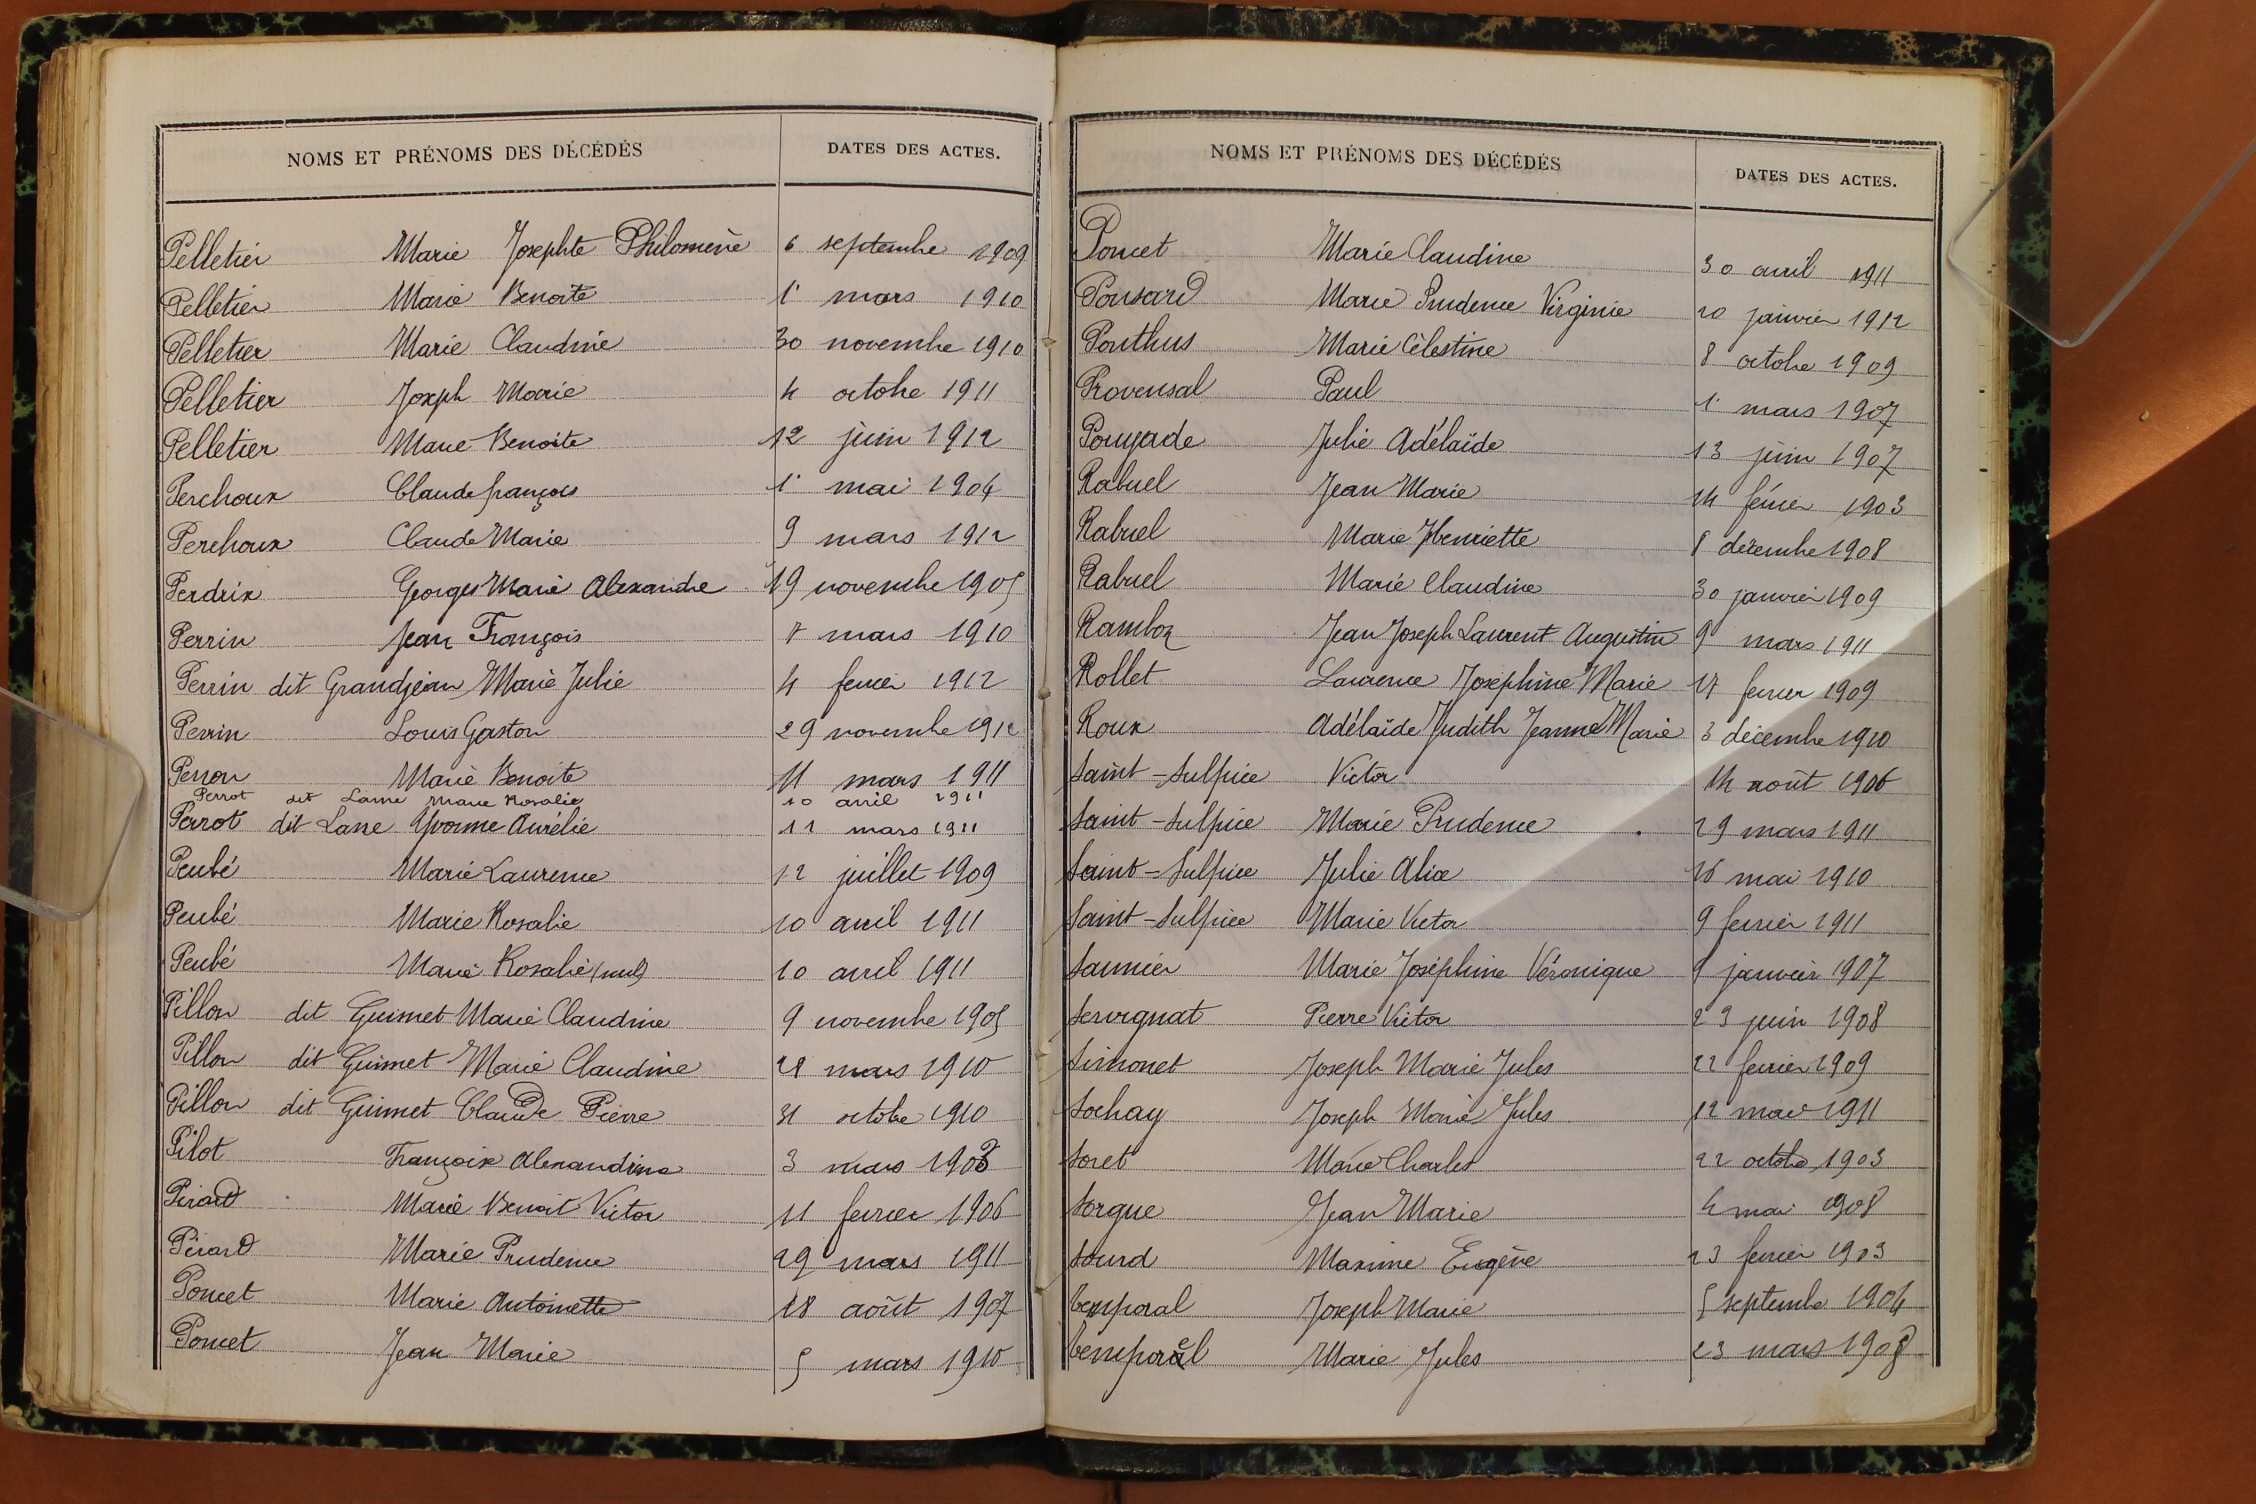 NOMS ET PRÉNOMS DES DÉCÉDÉS DATES DES ACTES.
Pelletier Marie Josephte Philomène 6 septembre 1909
Pelletier Marie Benoite 1er mars 1910
Pelletier Marie Claudine 30 novembre 1910
Pelletier Joseph Marie 4 octobre 1911
Pelletier Marie Benoite 12 juin 1912
Perchoux Claude françois 1er mai 1904
Perchoux Claude Marie 9 mars 1912
Perdrix Georges Marie Alexandre 19 novembre 1905
Perrin Jean François 7 mars 1910
Perrin dit Grandjean Marie Julie 4 fevrier 1912
Perrin Louis Gaston 29 novembre 1912
Perron Marie Benoite 11 mars 1911
Perrot dit Lanne Marie Rosalie 10 avril 1911
Perrot dit Lane Yvonne Aurélie 11 mars 1911
Peubé Marie Laurence 12 juillet 1909
Peubé Marie Rosalie 10 avril 1911
Peubé Marie Rosalie (nul) 10 avril 1911
Pillon dit Guimet Marie Claudine 9 novembre 1905
Pillon dit Guimet Marie Claudine 28 mars 1910
Pillon dit Guimet Claude Pierre 31 octobre 1910
Pilot Françoise Alexandrine 3 mars
Pirard Marie Benoit Victor 11 fevrier 1906
Pirard Marie Prudence 29 mars 1911
Poncet Marie Antoinette 18 août 1907
Poncet Jean Marie 5 mars 1910
NOMS ET PRÉNOMS DES DÉCÉDÉS DATES DES ACTES.
Poncet Marie Claudine 30 avril 1911
Ponsard Marie Prudence Virginie 20 janvier 1912
Ponthus Marie Célestine 8 octobre 1909
Provensal Paul 1er mars 1907
Pouyade Julie Adélaïde 13 juin 1907
Rabuel Jean Marie 14 février 1903
Rabuel Marie Henriette 8 décembre 1908
Rabuel Marie Claudine 30 janvier 1909
Ramboz Jean Joseph Laurent Augustin 9 mars 1911
Rollet Laurence Josephine Marie 17 fevrier 1909
Roux Adélaïde Judith Jeanne Marie 3 décembre 1910
Saint-Sulpice Victor 14 août 1906
Saint-Sulpice Marie Prudence 29 mars 1911
Saint-Sulpice Julie Alix 16 mai 1910
Saint-Sulpice Marie Victor 9 fevrier 1911
Saunier Marie Joséphine Véronique 9 janvier 1907
Servignat Pierre Victor 23 juin 1908
Simonet Joseph Marie Jules 22 fevrier 1909
Sochay Joseph Marie Jules 12 mai 1911
Soret Marie Charles 22 octobre 1903
Sorgue Jean Marie 4 mai 1908
Sourd Maxime Eugène 23 fevrier 1903
Temporal Joseph Marie 5 septembre 1904
Temporal Marie Jules 23 mars 1908